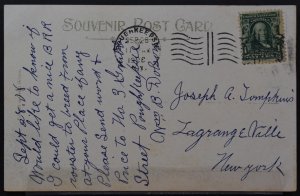 SOUVENIR POST CARD
POUGHKEEPSIE
Sept
Would like to know if
I could get a nice BRR
rooster to breed from
at your Place if any
Please send word &
Price to No 3
Street Poughkeepsie
Wm B.
Joseph A. Tompkins
Lagrangeville
New york